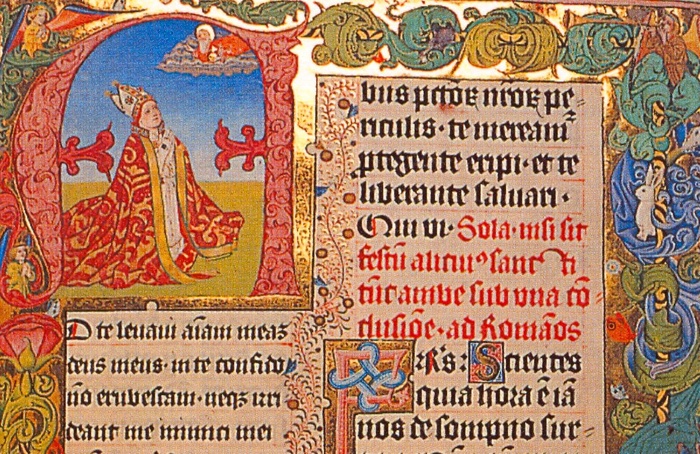 AD te leuaui aīam meaꝫ
deus meus · in te confido
nō erubescam · neqꝫ irri
deant me inimici mei
bus pctoꝝ nroꝝ pe=
riculis · te mereamr̄
ptegente eripi · et te
liberante saluari ·
Qui vi· Sola · nisi sit
festū alicuiꝰ sanct
ambe sub vna cō=
clusiōe · ad Romāos
Frs: Scientes
quia hora ē iā
nos de sompno sur=